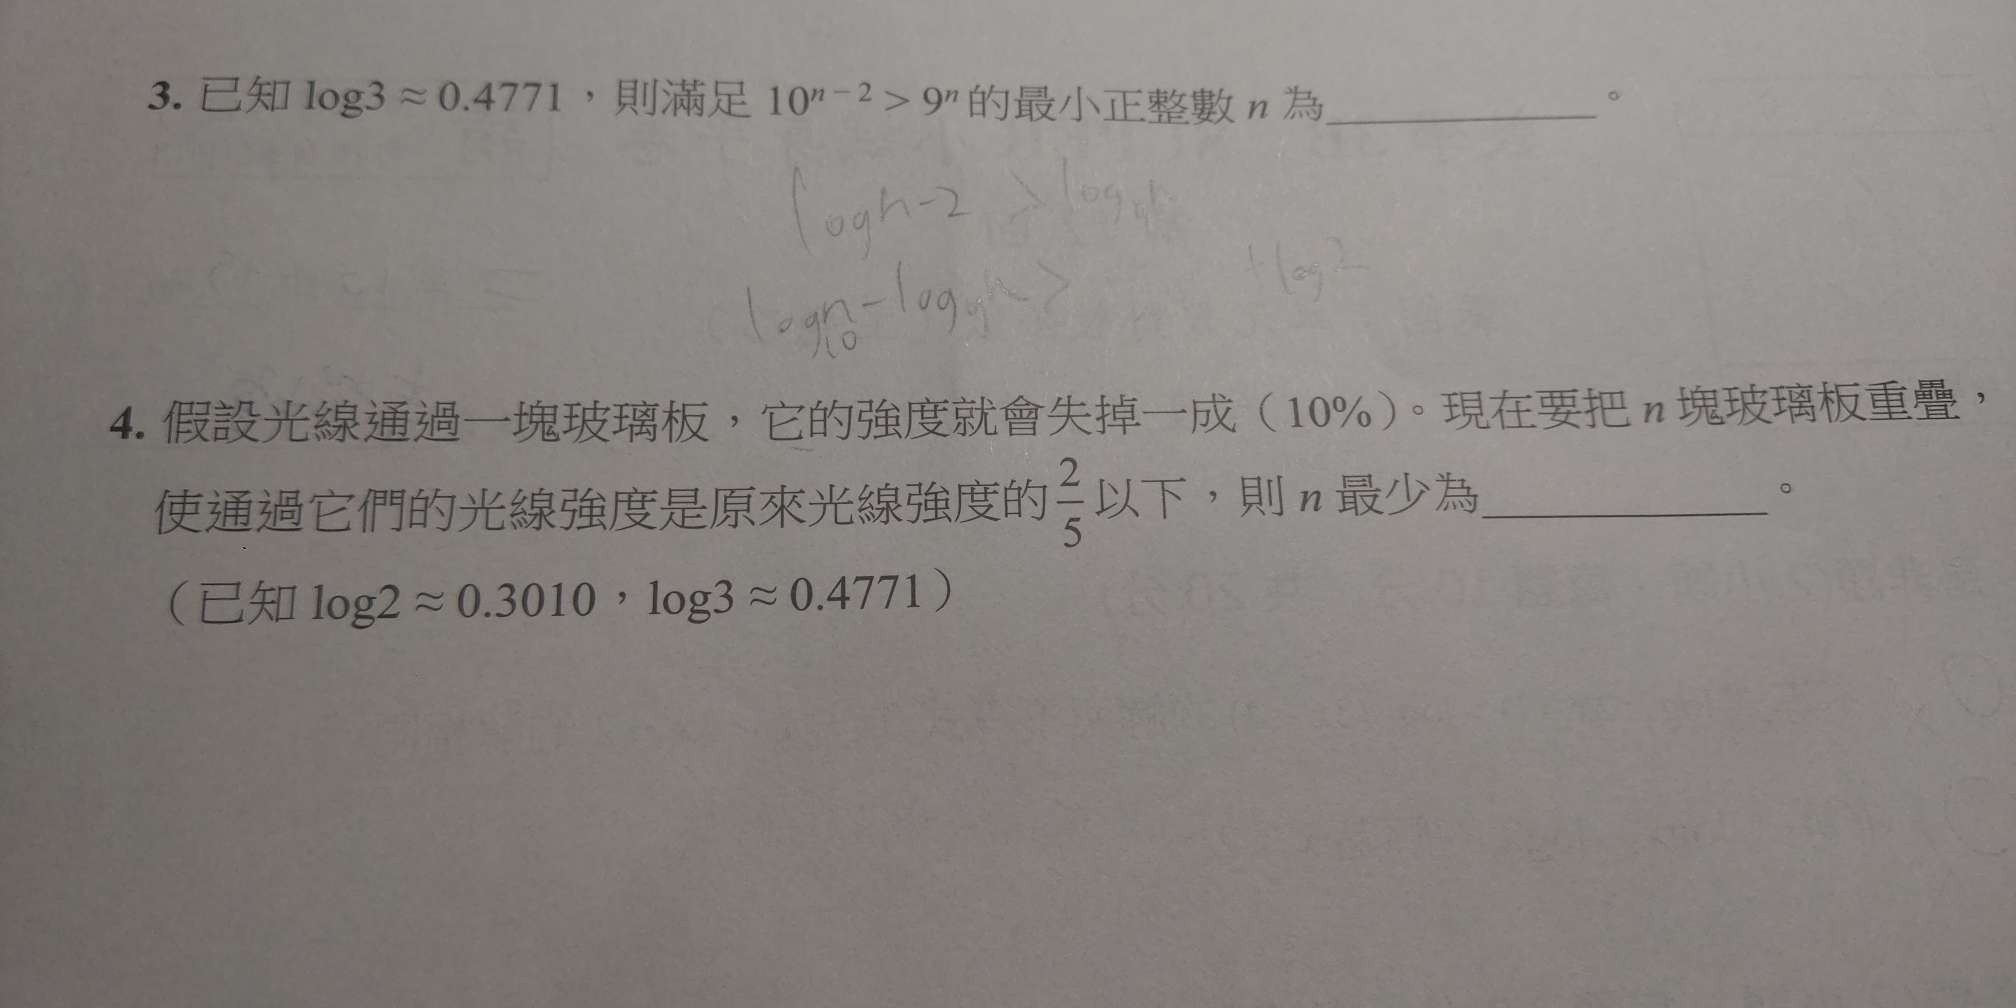 3. 已知 log3 ≈ 0.4771，則滿足 10ⁿ⁻² > 9ⁿ 的最小正整數 n 為＿＿＿＿＿＿。
log n-2 > log₉n
log₁₀n - log₉n > +log2
4. 假設光線通過一塊玻璃板，它的強度就會失掉一成（10%）。現在要把 n 塊玻璃板重疊，
使通過它們的光線強度是原來光線強度的 2/5 以下，則 n 最少為＿＿＿＿＿＿。
（已知 log2 ≈ 0.3010，log3 ≈ 0.4771）